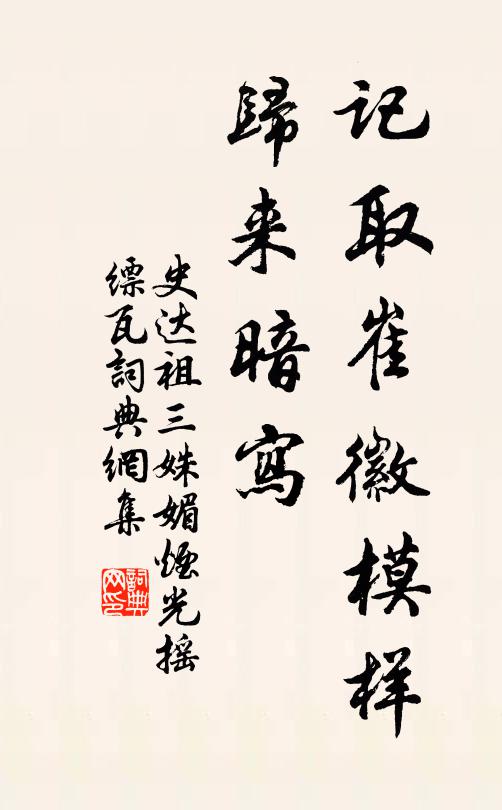 记取崔徽模样
歸来暗寫
史达祖三姝媚煙光摇
缥瓦詞典網集
詞典
网印